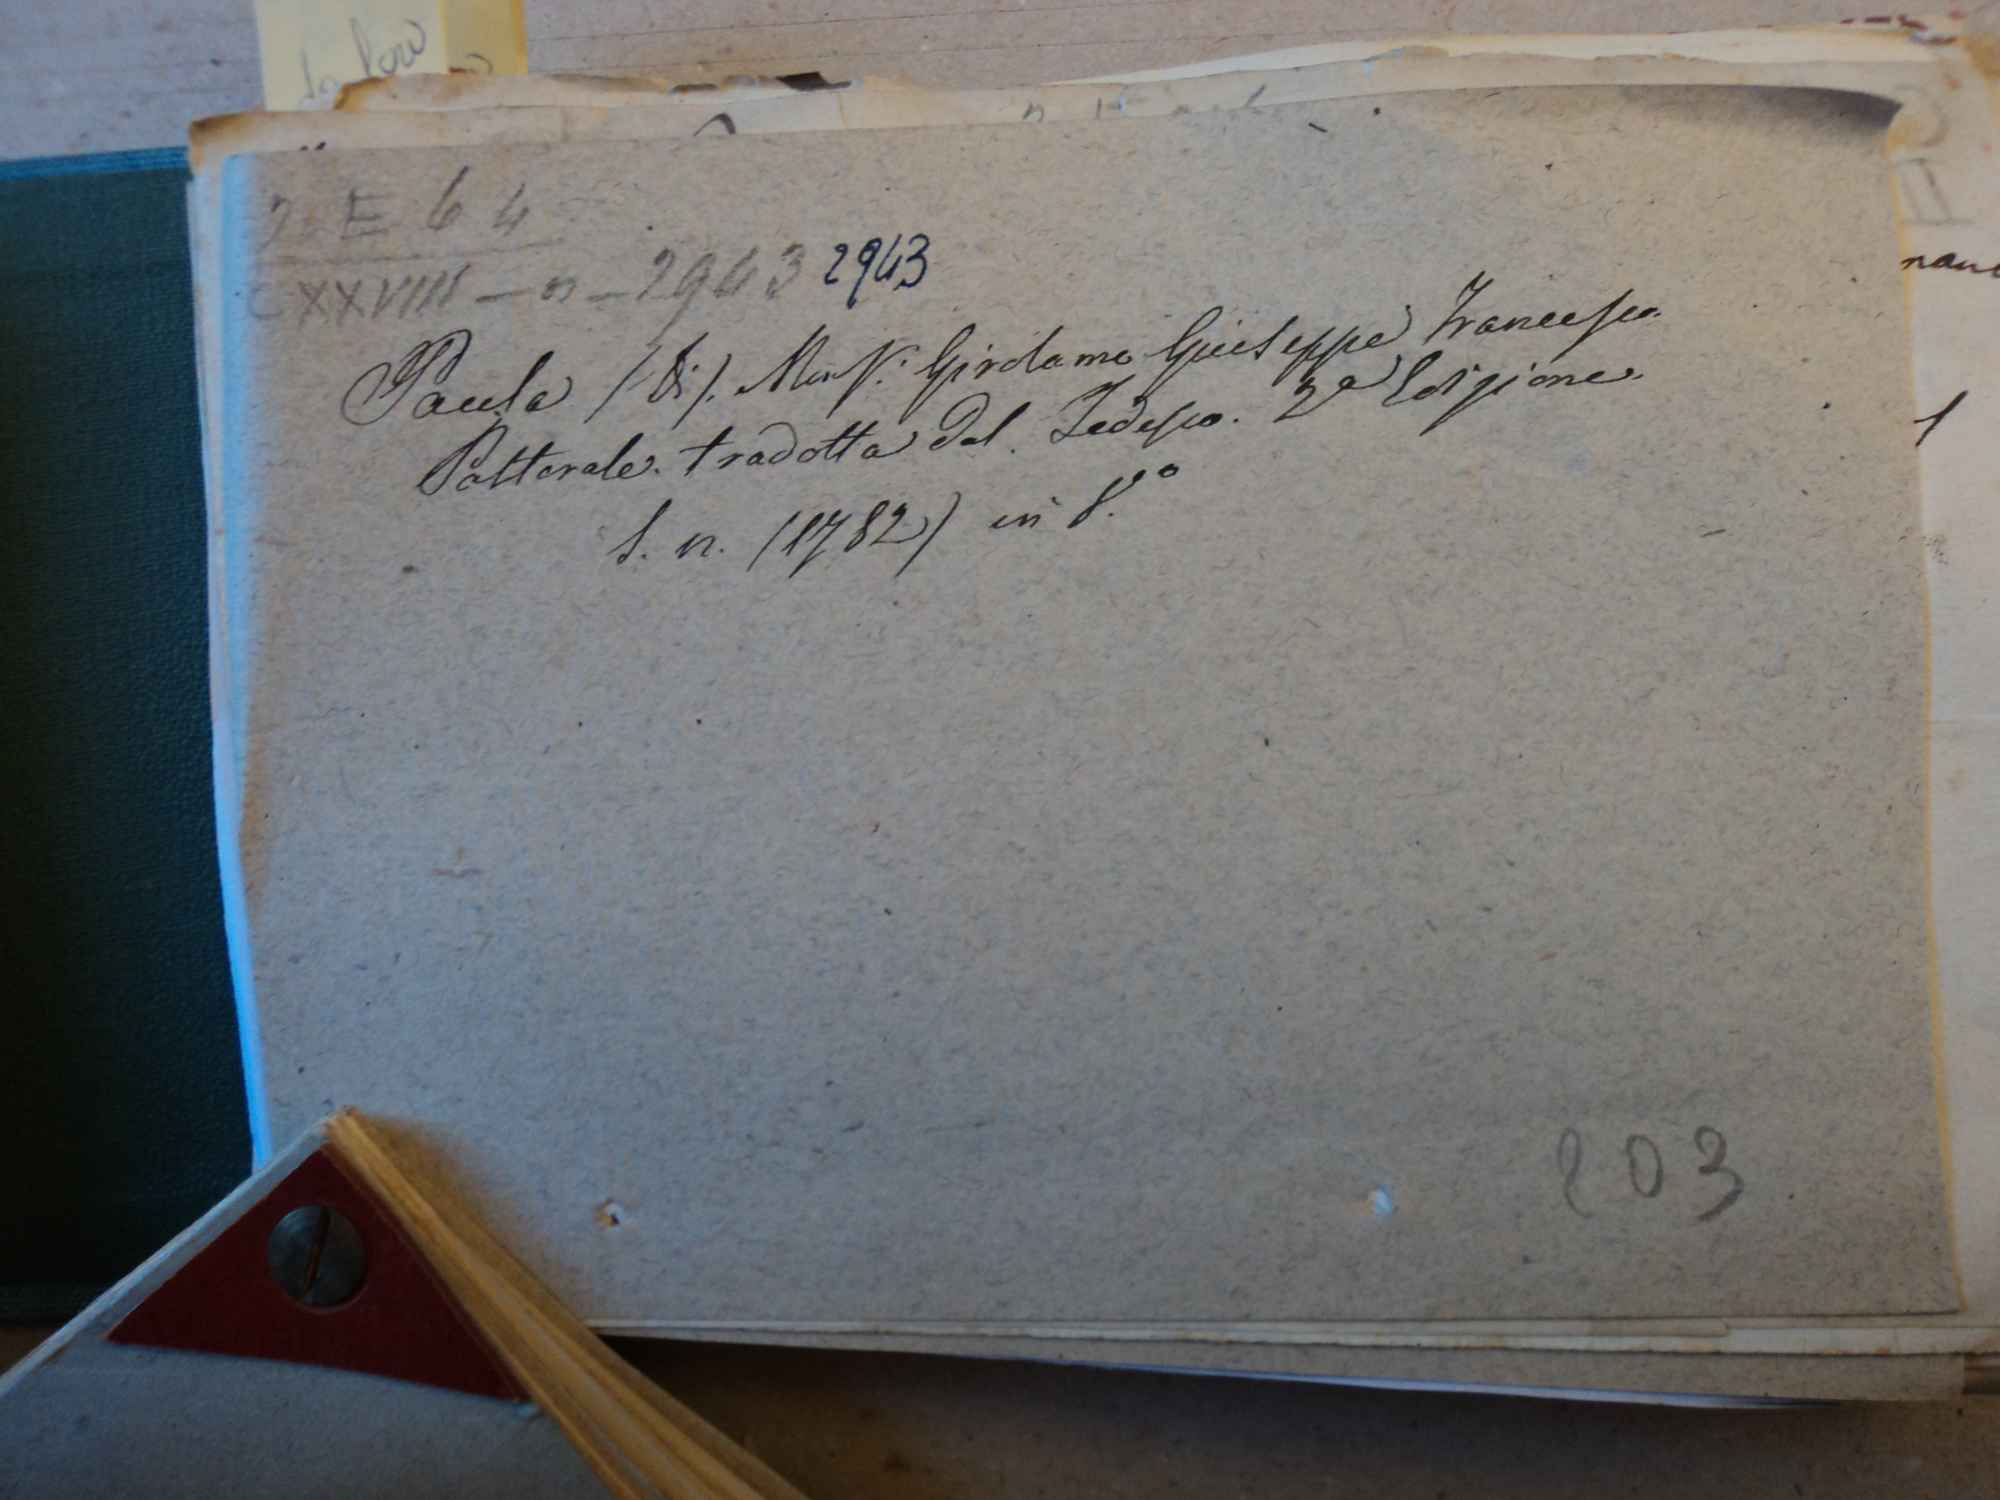 E 64
CXXVIII - n - 2943 2943
Paula (Di). Mons.r Girolamo Giuseppe Francesco.
Pastorale. tradotta dal Tedesco. 2a Edizione.
S. n. (1782) in 8.°
203